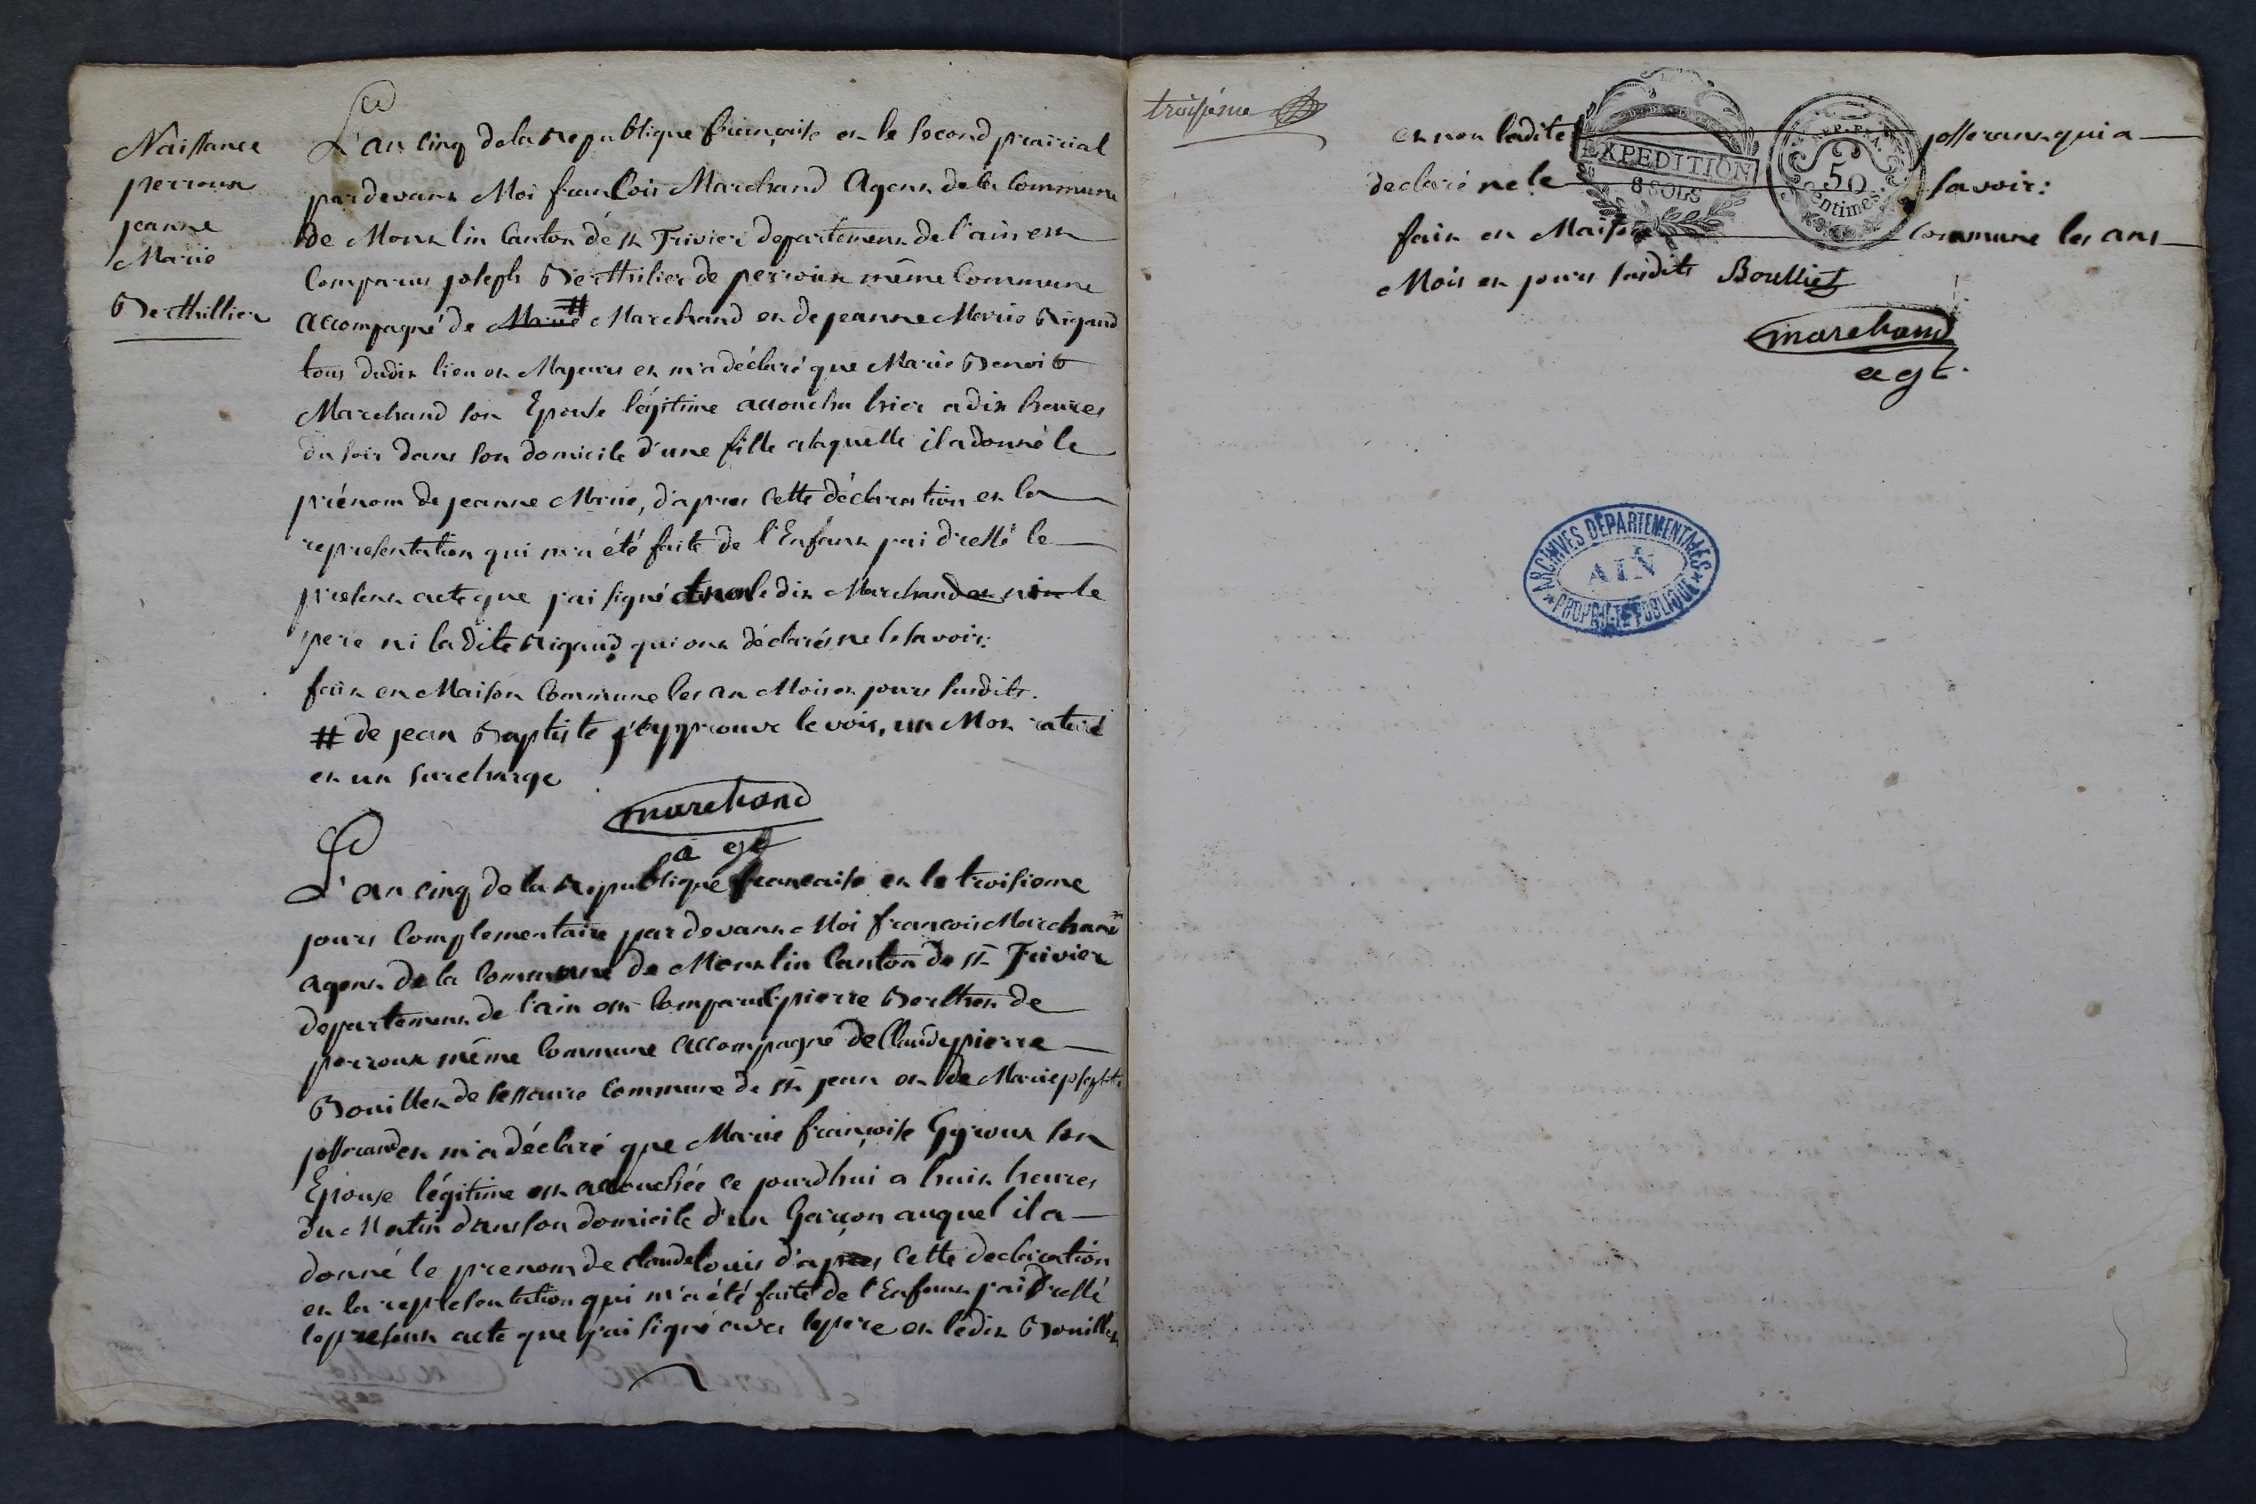 Naissance
perroux
jeanne
Marie
Berthillier
L'an cinq de la Republique française et le second prairial
pardevant Moi francois Marchand Agent de la Commune
de Montlin Canton de st Trivier departement de l'ain est
Comparus joseph Berthilier de perroux même Commune
accompagné de Marie # Marchand et de jeanne Marie Rigaud
tous dudit lieu et Majeurs et m'a déclaré que Marie Benoit
Marchand son Epouse légitime accoucha hier a dix heures
du soir dans son domicile d'une fille alaquelle il a donné le
prénom de jeanne Marie, d'apres cette déclaration et la
representation qui m'a été faite de l'Enfant j'ai dressé le
present acte que j'ai signé et non ledit Marchand et non le
pere ni la dite Rigaud qui ont déclarés ne le savoir:
fait en Maison Commune les an Mois et jours susdits.
# de jean Baptiste j'approuve le vois, un Mot raturé
et un surcharge
marchand
agt
L'an cinq de la Republique francaise et le troisieme
jours Complementaire pardevant Moi francois Marchand
agent de la Commune de Montlin Canton de st Trivier
departement de l'ain est Comparut pierre Berthet de
perroux même Commune accompagné de Claude pierre
Bouillet de Commune de st jean et de Marie
josserand et m'a déclaré que Marie françoise son
Epouse légitime est accouchée ce jourdhui a huit heures
du Matin dans son domicile d'un Garçon auquel il a
donné le prenom de claude louis d'apres cette declaration
et la representation qui m'a été faite de l'Enfant j'ai dressé
le present acte que j'ai signé avec le pere et ledit Bouillet
troisiéme
et non ladite josserant qui a
declaré ne le savoir:
fait en Maison Commune les ans
Mois et jours susdits Boulliet
marchand
agt.
EXPEDITION
8 SOLS
REP. FRA.
50
centimes
ARCHIVES DÉPARTEMENTALES
AIN
PROPRIÉTÉ PUBLIQUE